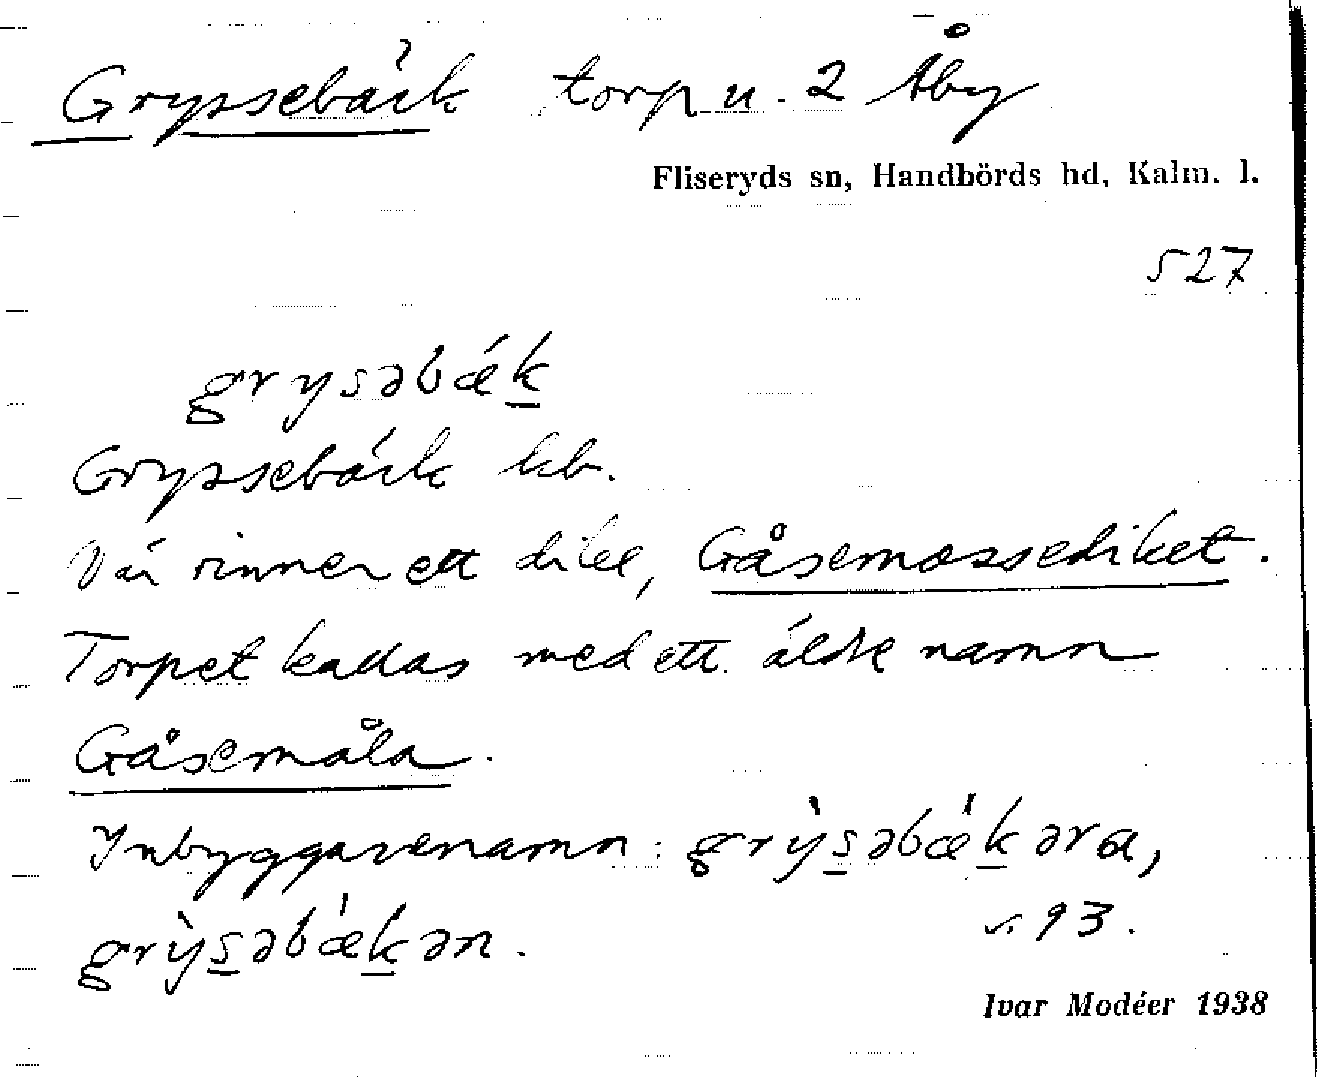 Gryssebäck torp u. 2 Åby
Fliseryds sn, Handbörds hd, Kalm. l.
527
grysəbǽk
Gryssebäck kb.
Där rinner ett dike, Gåsemossediket.
Torpet kallas med ett äldre namn
Gåsemåla.
Inbyggarenamn: grỳsəbǽkəra,
grỳsəbǽkən.
s. 93.
Ivar Modéer 1938